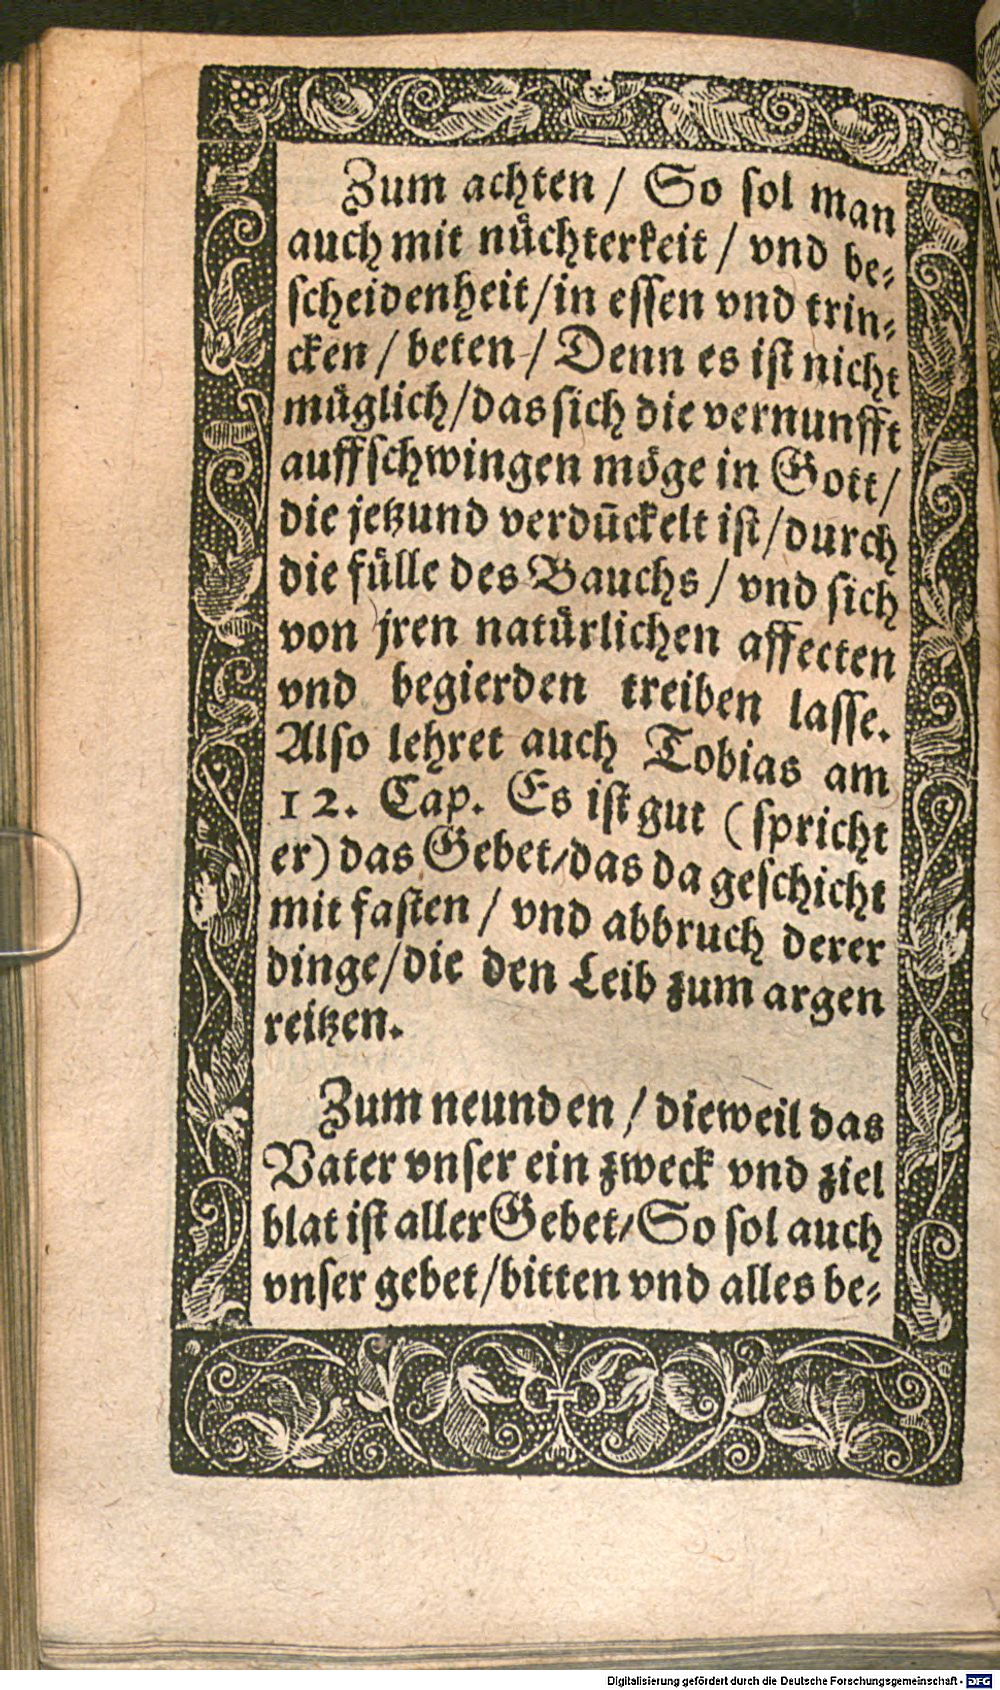 Zum achten / So sol man
auch mit nüchterkeit / vnd be⸗
scheidenheit/in essen vnd trin⸗
cken / beten / Denn es ist nicht
müglich/das sich die vernunfft
auffschwingen möge in Gott/
die jetzund verdūckelt ist/durch
die fülle des Bauchs / vnd sich
von jren natürlichen affecten
vnd begierden treiben lasse.
Also lehret auch Tobias am
12. Cap. Es ist gut (spricht
er) das Gebet/das da geschicht
mit fasten / vnd abbruch derer
dinge/die den Leib zum argen
reitzen.
Zum neunden / dieweil das
Vater vnser ein zweck vnd ziel
blat ist aller Gebet/So sol auch
vnser gebet/bitten vnd alles be⸗
Digitalisierung gefördert durch die Deutsche Forschungsgemeinschaft - DFG